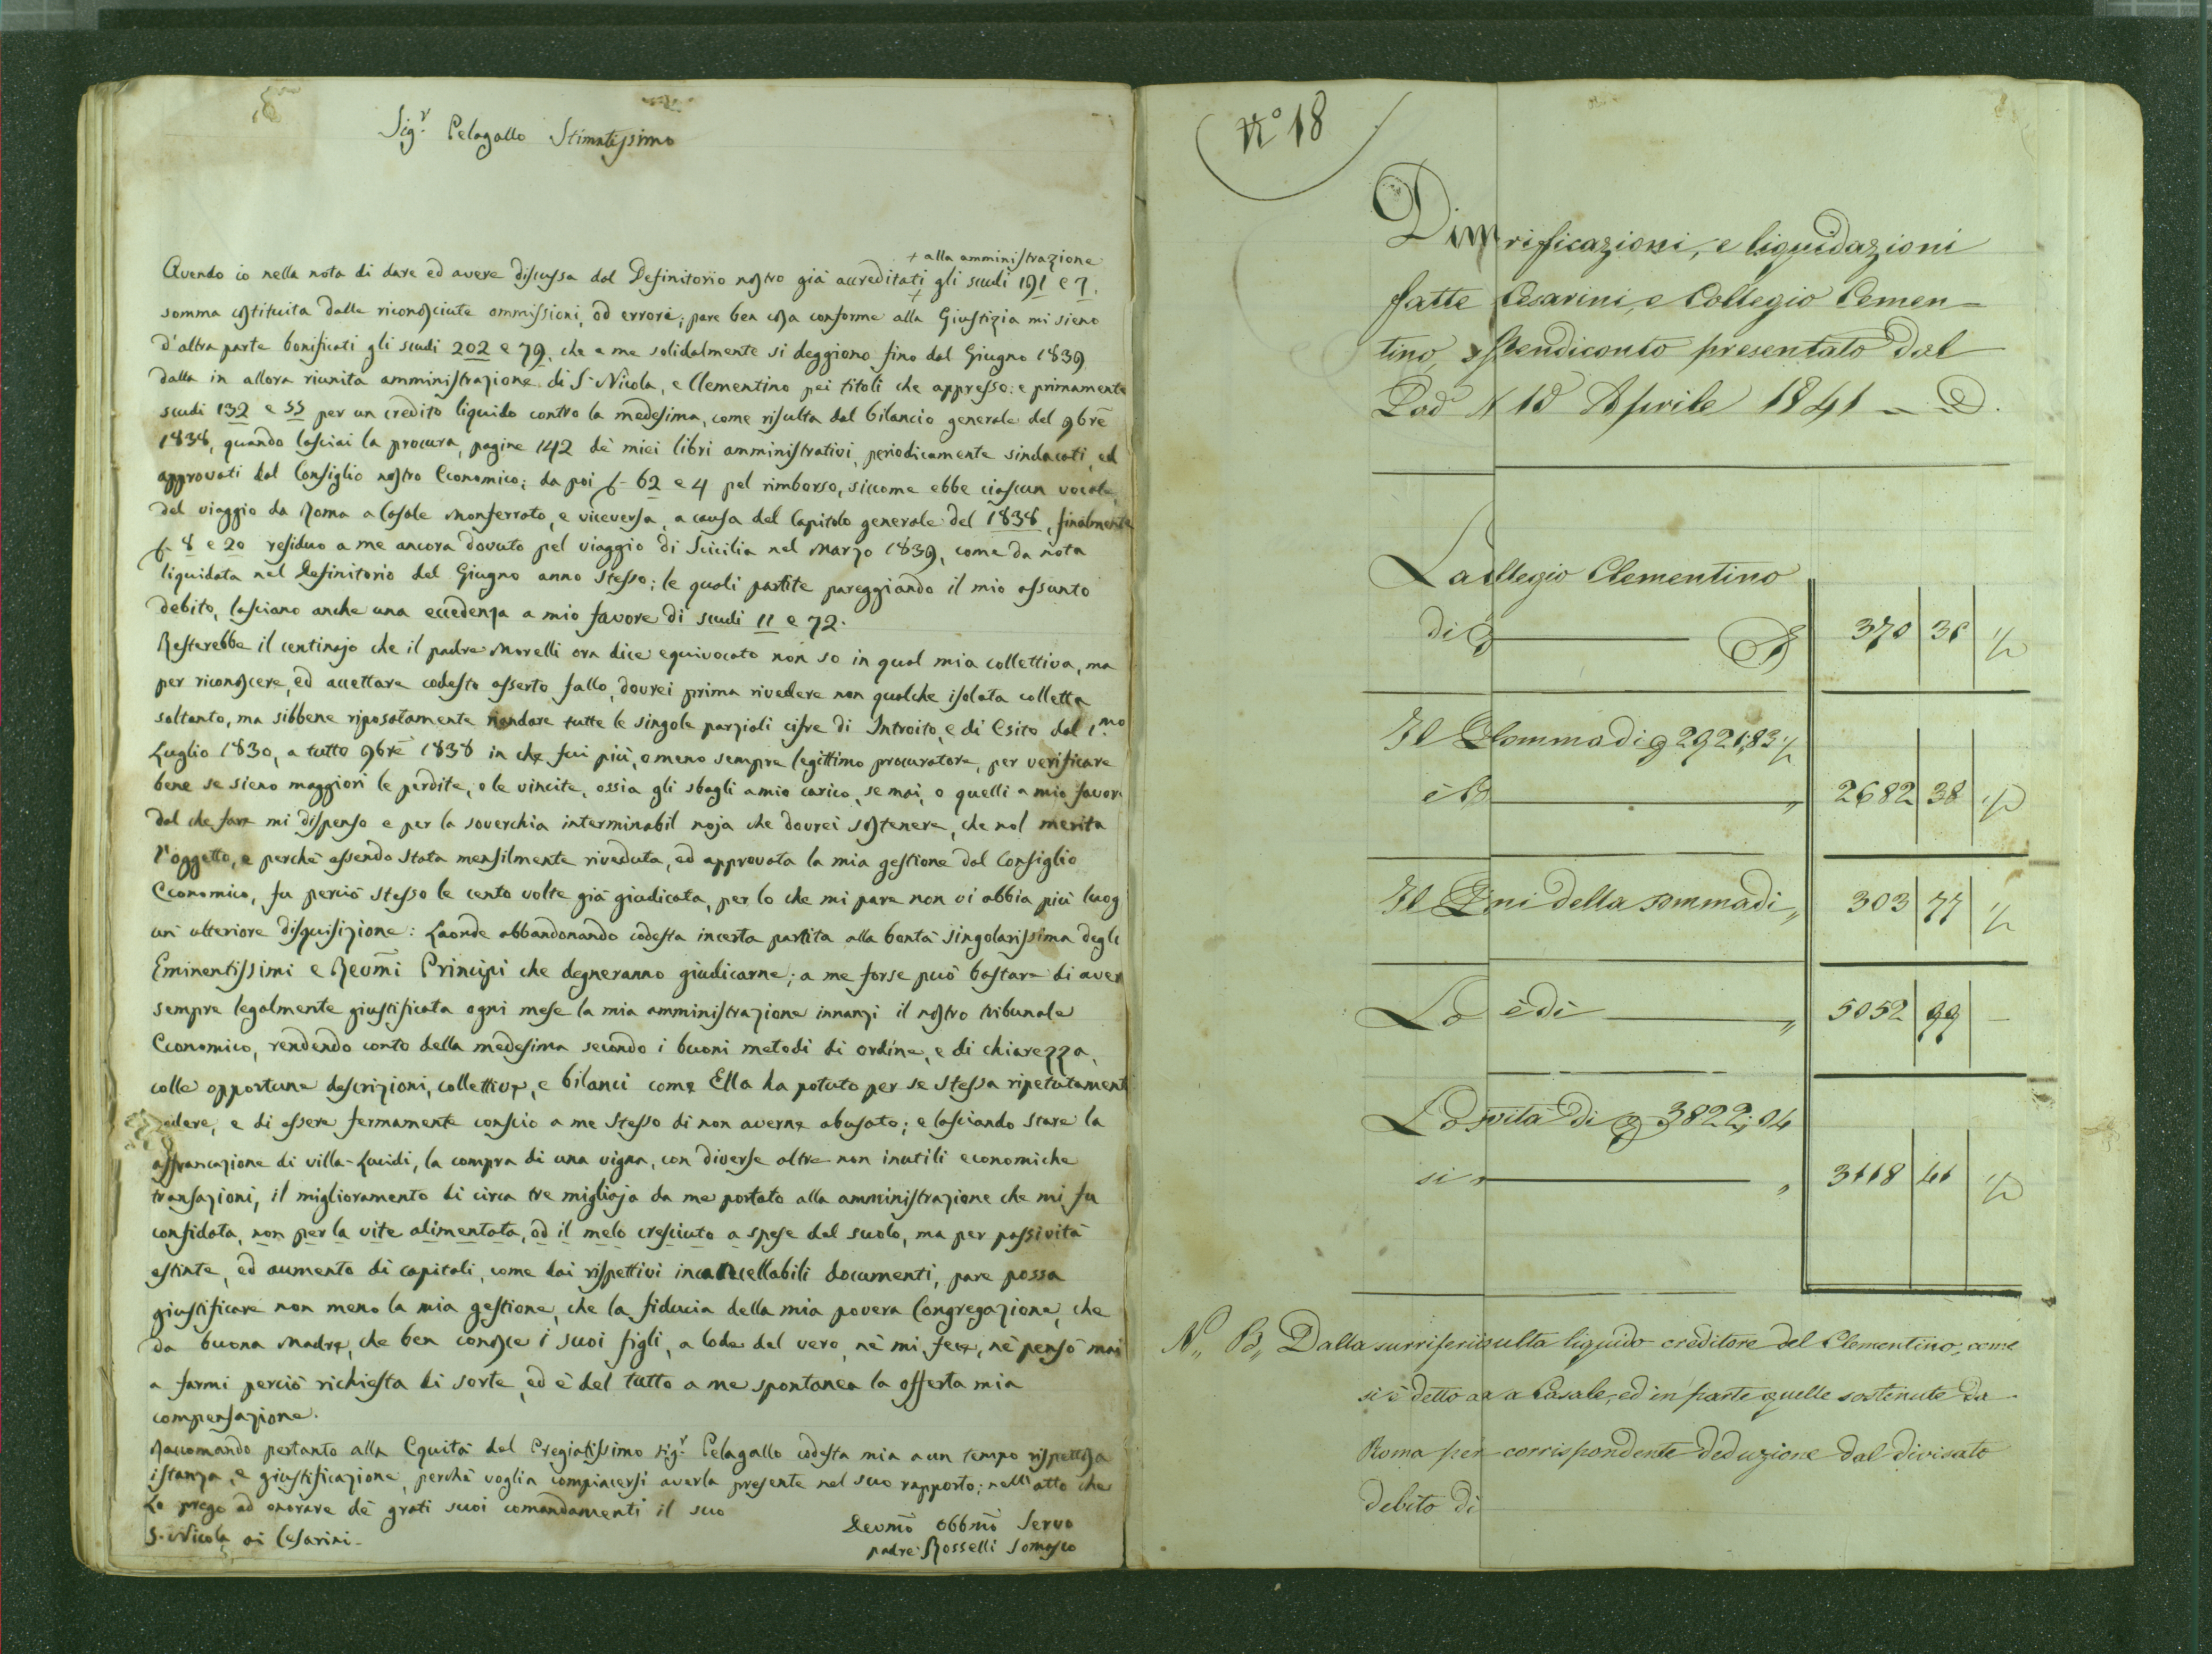 Sig.r Pelagallo Stimatissimo
+ alla amministrazione
Avendo io nella nota di dare ed avere discussa dal Definitorio nostro già accreditati + gli scudi 191 e 7.
somma costituita dalle riconosciute ommissioni, od errore; pare ben cosa conforme alla Giustizia mi sieno
d'altra parte bonificati gli scudi 202 e 79. che a me solidalmente si deggiono fino dal Giugno 1839
dalla in allora riunita amministrazione di S. Nicola, e Clementino pei titoli che appresso: e primamente
scudi 132 e 55 per un credito liquido contro la medesima, come risulta dal bilancio generale del 9bre
1838, quando lasciai la procura, pagine 142 de' miei libri amministrativi, periodicamente sindacati, ed
approvati dal Consiglio nostro Economico; da poi 62 e 4 pel rimborso, siccome ebbe ciascun vocale,
del viaggio da Roma a Casale Monferrato, e viceversa, a causa del Capitolo generale del 1838, finalmente
8 e 20 residuo a me ancora dovuto pel viaggio di Scicilia nel Marzo 1839, come da nota
liquidata nel Definitorio del Giugno anno stesso; le quali partite pareggiando il mio assunto
debito, lasciano anche una eccedenza a mio favore di scudi 11 e 72.
Resterebbe il centinajo che il padre Morelli ora dice equivocato non so in qual mia collettiva, ma
per riconoscere, ed accettare codesto asserto fallo, dovrei prima rivedere non qualche isolata colletta
soltanto, ma sibbene riposatamente riandare tutte le singole parziali cifre di Introito, e di Esito dal 1.mo
Luglio 1830, a tutto 9bre 1838 in che fui più, o meno sempre legittimo procuratore, per verificare
bene se sieno maggiori le perdite, o le vincite, ossia gli sbagli a mio carico, se mai, o quelli a mio favor
dal che fare mi dispenso e per la soverchia interminabil noja che dovrei sostenere, che nol merita
l'oggetto, e perchè essendo stata mensilmente riveduta, ed approvata la mia gestione dal Consiglio
Economico, fu perciò stesso le cento volte già giudicata, per lo che mi pare non vi abbia più luog
un' ulteriore disquisizione: Laonde abbandonando codesta incerta partita alla bontà singolarissima degli
Eminentissimi e Revmi Principi che degneranno giudicarne; a me forse può bastare di aver
sempre legalmente giustificata ogni mese la mia amministrazione innanzi il nostro tribunale
Economico, rendendo conto della medesima secondo i buoni metodi di ordine, e di chiarezza,
colle opportune descrizioni, collettive, e bilanci come Ella ha potuto per se stessa ripetutament
vedere, e di essere fermamente conscio a me stesso di non averne abusato; e lasciando stare la
affrancazione di villa-Lucidi, la compra di una vigna, con diverse altre non inutili economiche
transazioni, il miglioramento di circa tre migliaja da me portato alla amministrazione che mi fu
confidata, non per la vite alimentata, od il melo cresciuto a spese del suolo, ma per passività
estinte, ed aumento di capitali, come dai rispettivi incancellabili documenti, pare possa
giustificare non meno la mia gestione, che la fiducia della mia povera Congregazione, che
da buona Madre, che ben conosce i suoi figli, a lode del vero, nè mi fece, nè pensò mai
a farmi perciò richiesta di sorte, ed è del tutto a me spontanea la offerta mia
compensazione.
Raccomando pertanto alla Equità del Pregiatissimo sig.r Pelagallo codesta mia a un tempo rispettosa
istanza, e giustificazione, perchè voglia compiacersi averla presente nel suo rapporto; nell'atto che
La prego ad onorare de' grati suoi comandamenti il suo
S. Nicola ai Cesarini.
Devmo Obbmo Servo
padre Rosselli Somasco
N.o 18
Dim rificazioni, e liquidazioni
fatte Cesarini, e Collegio Clemen-
tino, s Rendiconto presentato dal
Pad 18 Aprile 1841
La ollegio Clementino
di 370 36 ½
Il somma di 2921,83 ½
è 2682 38 ½
Il ni della somma di 303 77 ½
La è di 5052 99 -
La sività di 3822; 04
si 3118 41 ½
N,, B,, Dalla surriferi isulta liquido creditore del Clementino, come
si è detto a a Casale, ed in parte quelle sostenute da
Roma per corrispondente deduzione dal divisato
debito di